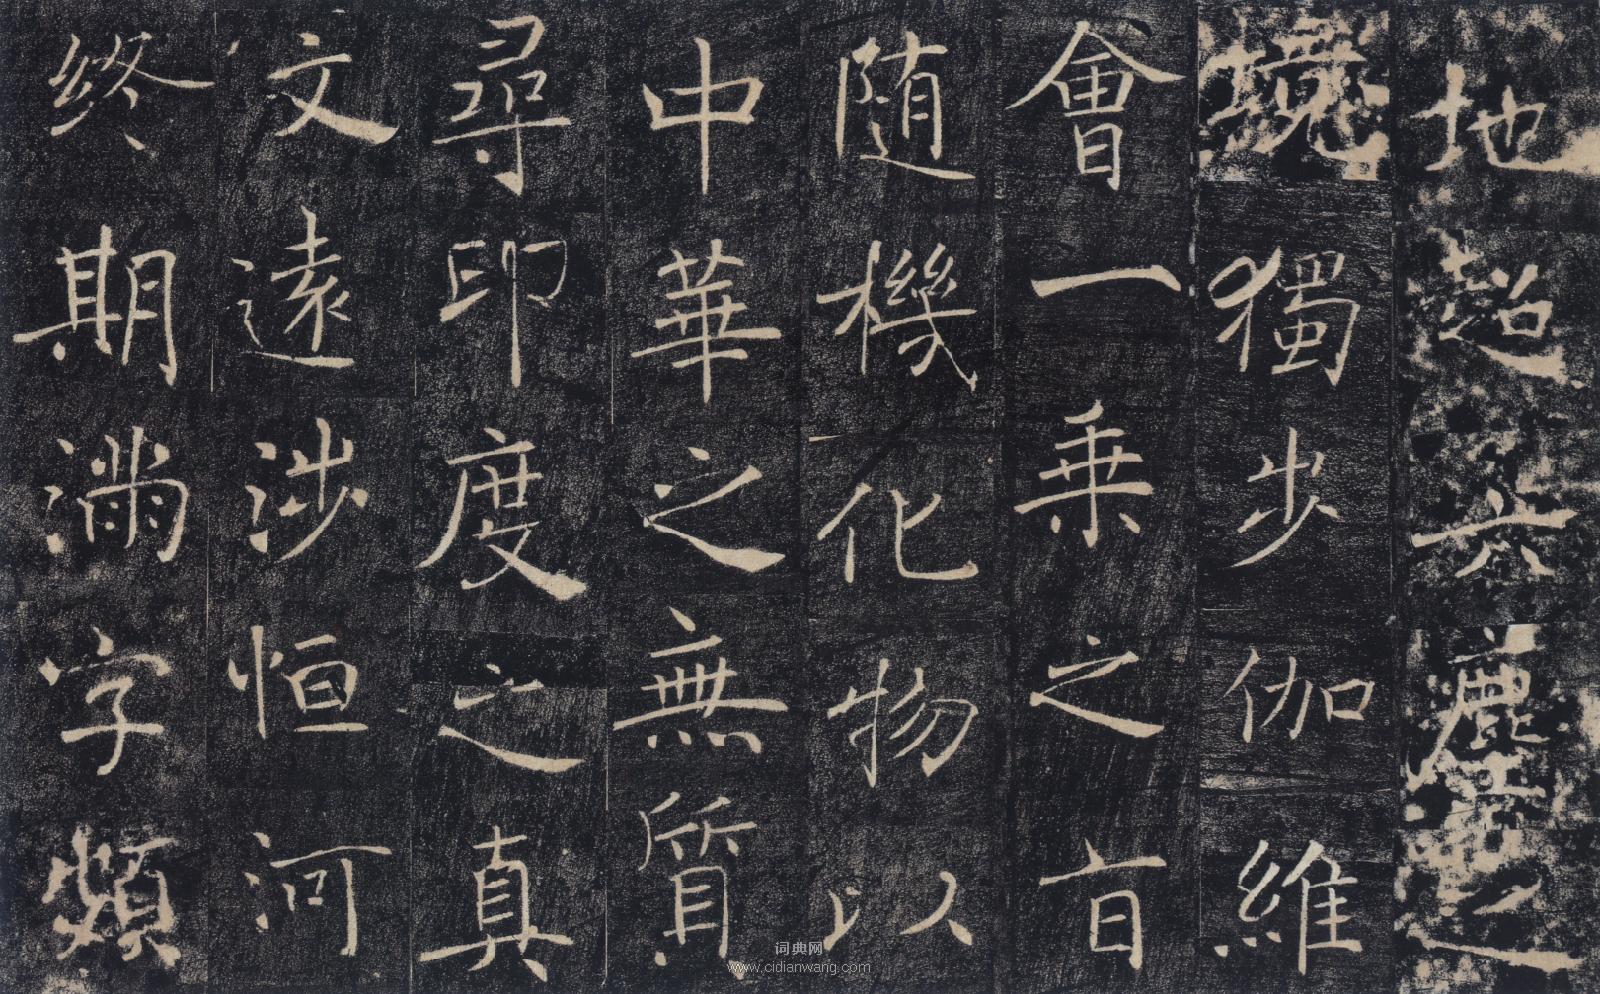 地超六塵之
境獨步伽維
會一乘之旨
随機化物以
中華之無質
尋印度之真
文遠涉恒河
終期滿字頻
词典网
www.cidianwang.com